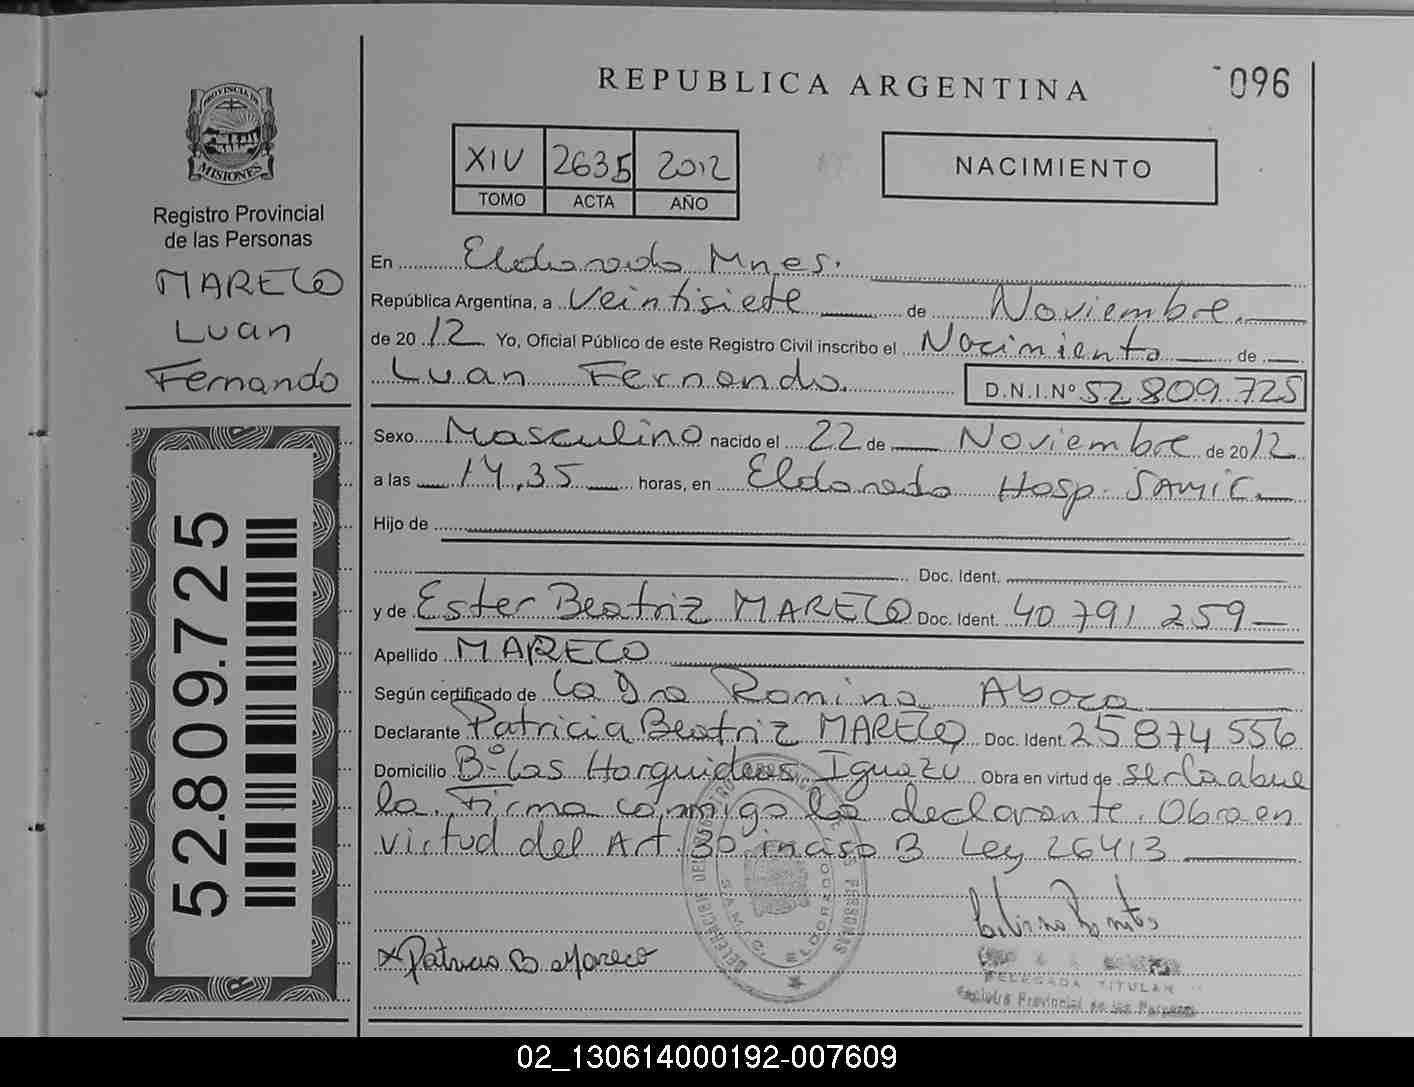 REPUBLICA ARGENTINA
096
PROVINCIA DE
MISIONES
Registro Provincial
de las Personas
MARECO
Luan
Fernando
52.809.725
XIV 2635 2012
TOMO ACTA AÑO
NACIMIENTO
En Eldorado Mnes.
República Argentina, a Veintisiete de Noviembre
de 2012 Yo, Oficial Público de este Registro Civil inscribo el Nacimiento de
Luan Fernando. D.N.I.Nº 52.809.725
Sexo Masculino nacido el 22 de Noviembre de 2012
a las 14,35 horas, en Eldorado Hosp. SAMIC
Hijo de
Doc. Ident.
y de Ester Beatriz MARECO Doc. Ident. 40 791 259
Apellido MARECO
Según certificado de La Dra Romina
Declarante Patricia Beatriz MARECO Doc. Ident. 25 874 556
Domicilio Bº Las Horquideas Iguazu Obra en virtud de ser la abue
la. Firma conmigo la declarante. Obra en
virtud del Art. 30 inciso B Ley 26413
x Patricia B. Mareco
S.A.M.I.C. ELDORADO
DELEGADA TITULAR
Registro Provincial de las Personas
02_130614000192-007609